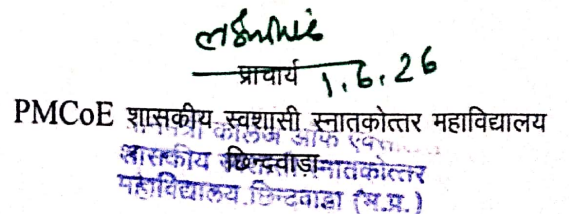 प्राचार्य 1.6.26
PMCoE शासकीय स्वशासी स्नातकोत्तर महाविद्यालय
छिन्दवाड़ा
कॉलेज ऑफ
शासकीय स्नातकोत्तर
महाविद्यालय छिन्दवाड़ा (म.प्र.)